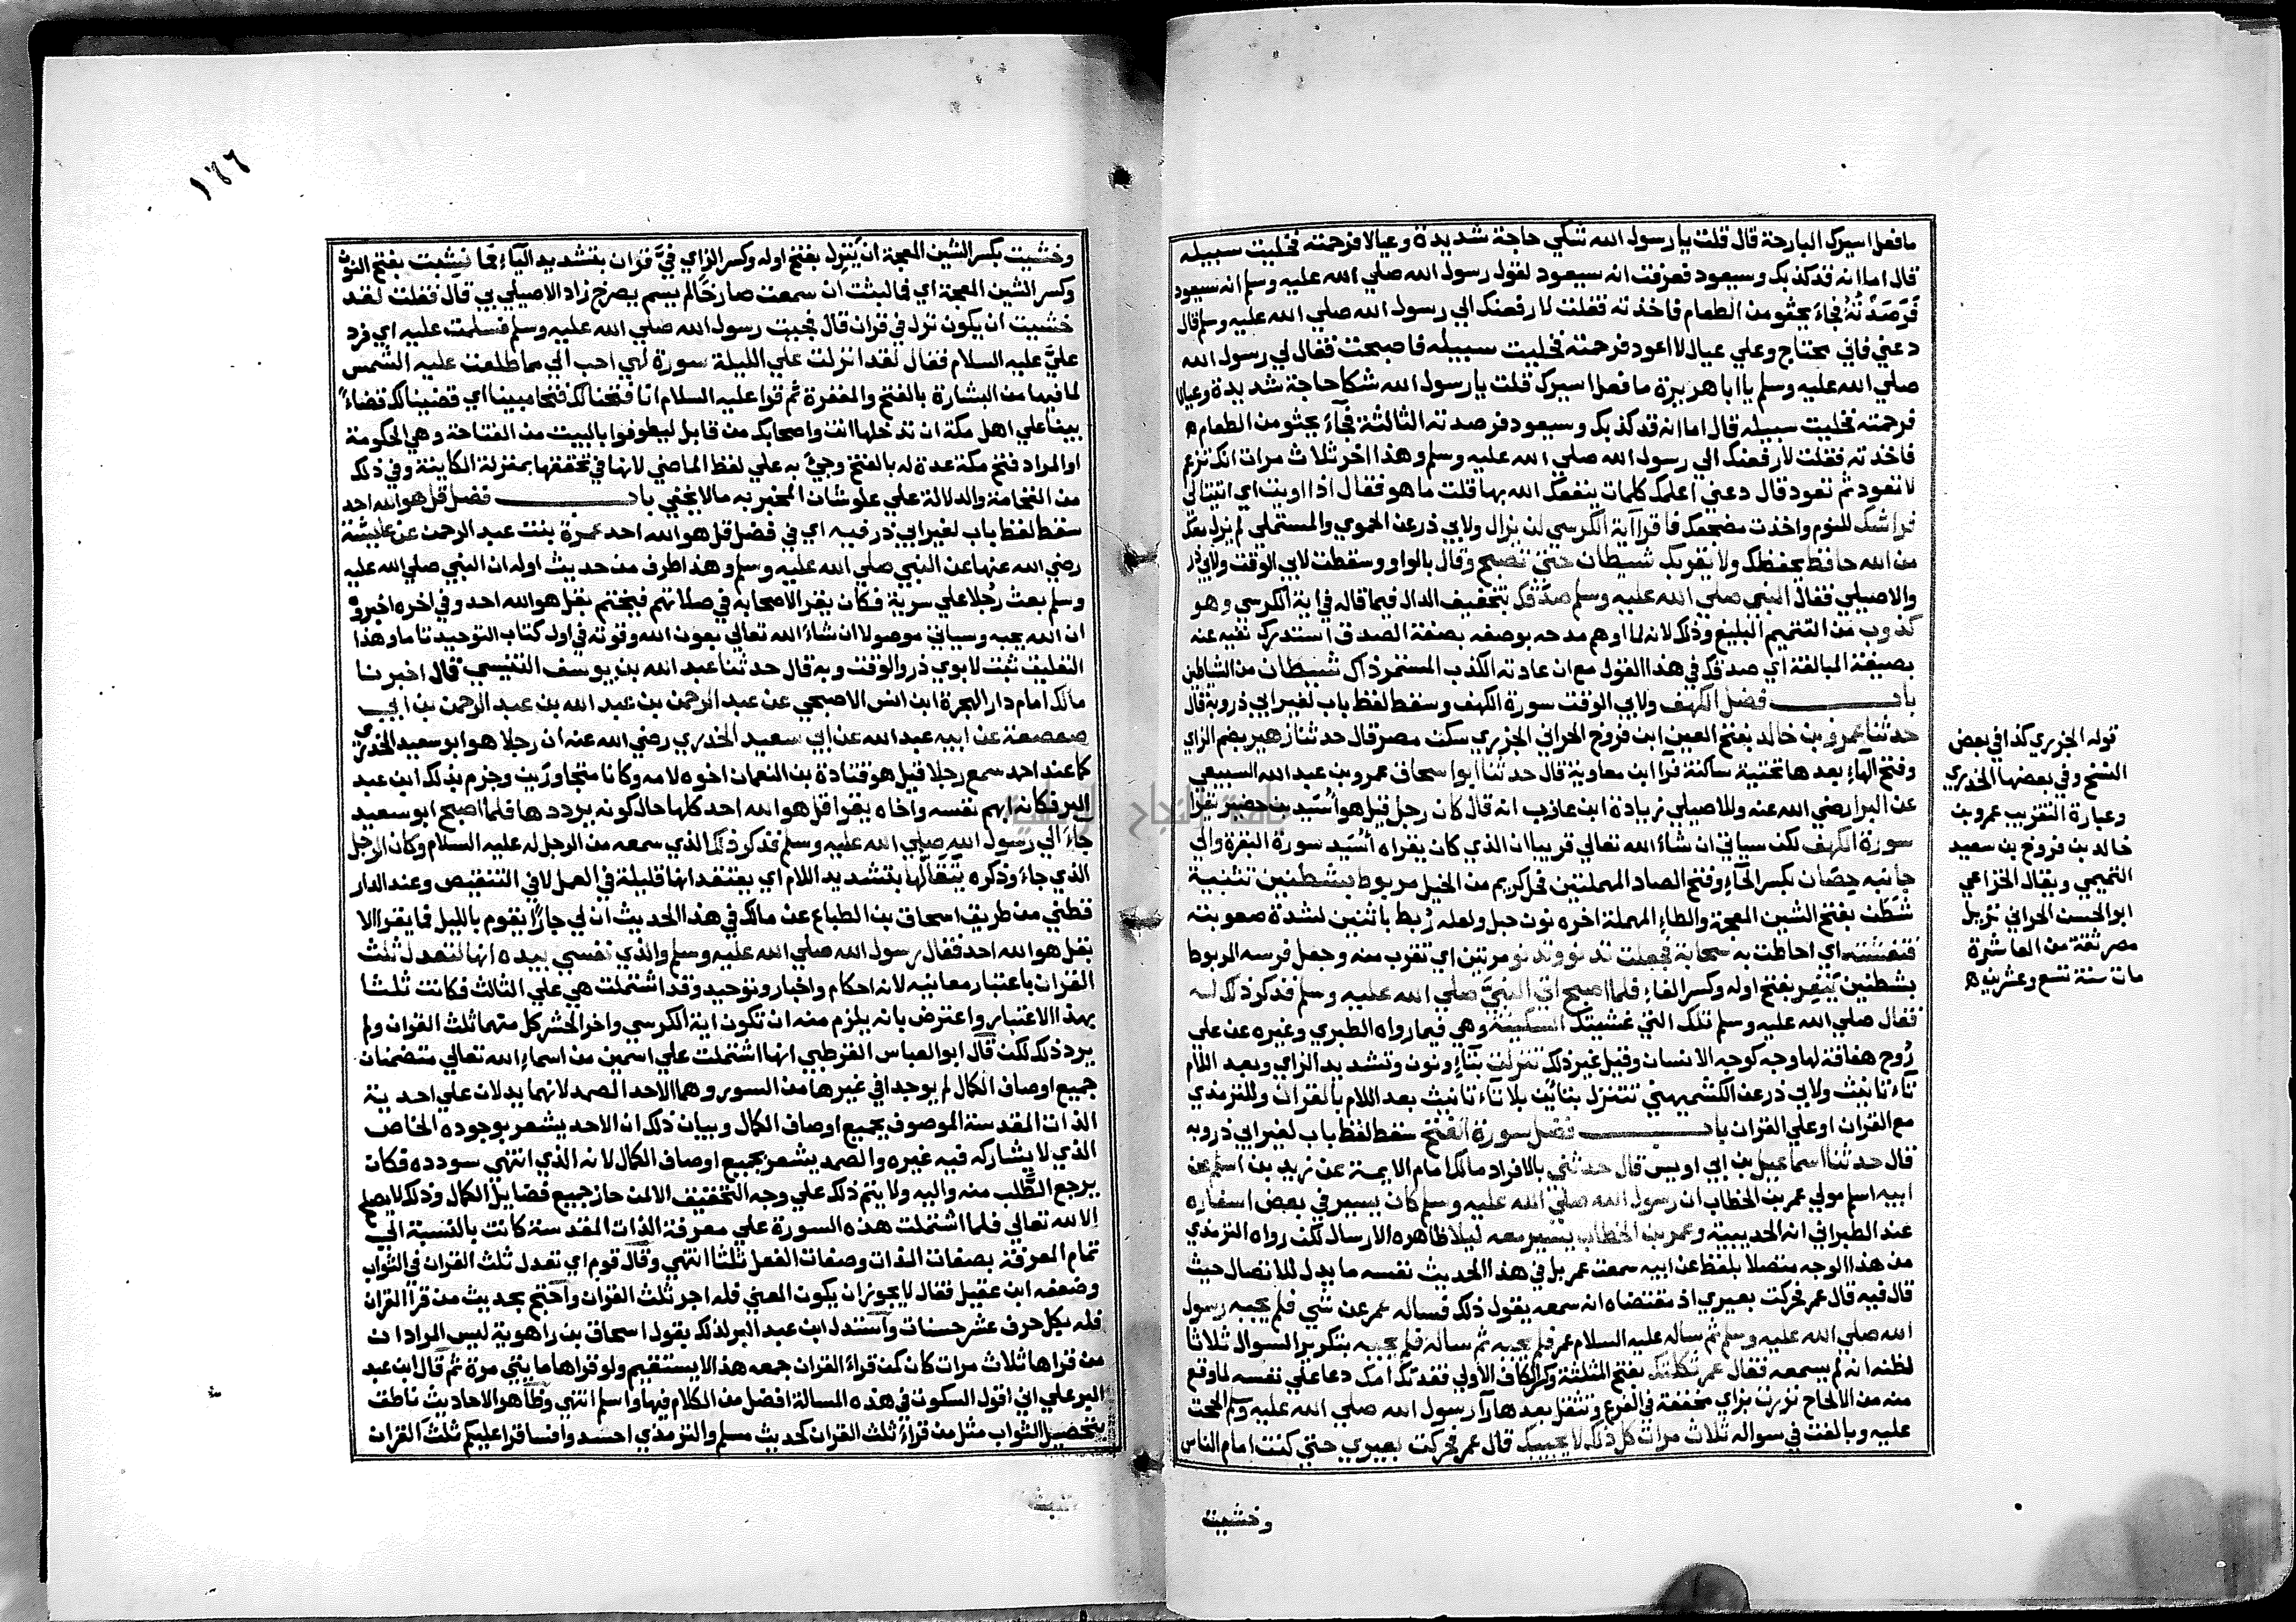 ما فعل اسيرك البارحة قال قلت يا رسول الله شكي حاجة شديدة وعيالا فرحمته فخليت سبيله
قال اما انه قد كذبك وسيعود فعرفت انه سيعود لقول رسول الله صلي الله عليه وسلم انه سيعود
فَرَصَدْتُهُ فجاء يحثو من الطعام فاخذته فقلت لارفعنك الي رسول الله صلي الله عليه وسلم قال
دعني فاني محتاج وعلي عيال لا اعود فرحمته فخليت سبيله فاصبحت فقال لي رسول الله
صلي الله عليه وسلم يا ابا هريرة ما فعل اسيرك قلت يا رسول الله شكا حاجة شديدة وعيالا
فرحمته فخليت سبيله قال اما انه قد كذبك وسيعود فرصدته الثالثة فجاء يحثو من الطعام ه
فاخذته فقلت لارفعنك الي رسول الله صلي الله عليه وسلم وهذا اخر ثلاث مرات انك تزعم
لا تعود ثم تعود قال دعني اعلمك كلمات ينفعك الله بها قلت ما هو فقال اذا اويت اي اتيت الي
فراشك للنوم واخذت مضجعك فاقرا آية الكرسي لن يزال ولابي ذر عن الحموي والمستملي لم يزل معك
من الله حافظ يحفظك ولا يقربك شيطان حتي تصبح وقال بالواو وسقطت لابي الوقت ولابي ذر
والاصيلي فقال النبي صلي الله عليه وسلم صَدَقَك بتخفيف الدال فيما قاله في اية الكرسي وهو
كذوب من التتميم البليغ وذلك لانه لما اوهم مدحه بوصفه بصفة الصدق استدرك نفيه عنه
بصيغة المبالغة اي صدقك في هذا القول مع ان عادته الكذب المستمر ذاك شيطان من الشياطين
باب فضل الكهف ولابي الوقت سورة الكهف وسقط لفظ باب لغير ابي ذر وبه قال
حدثنا عمرو بن خالد بفتح العين ابن فروخ الحراني الجزري سكن مصر قال حدثنا زهير بضم الزاي
وفتح الهاء بعدها تحتية ساكنة فرا ابن معاوية قال حدثنا ابو اسحاق عمرو بن عبد الله السبيعي
عن البرا رضي الله عنه وللاصيلي زيادة ابن عازب انه قال كان رجل قيل هو اُسَيد بن حضير يقرا
سورة الكهف لكن سياتي ان شاء الله تعالي قريبا ان الذي كان يقراه اُسَيد سورة البقرة والي
جانبه حِصَان بكسر الحاء وفتح الصاد المهملتين فحل كريم من الخيل مربوط بشطنين تثنية
شَطَن بفتح الشين المعجمة والطاء المهملة اخره نون حبل ولعله رُبط باثنين لشدة صعوبته
فتغشته اي احاطت به سحابة فجعلت تدنو وتدنو مرتين اي تقرب منه وجعل فرسه المربوط
بشطنين يَنْفِر بفتح اوله وكسر الفاء فلما اصبح اتي النبيَّ صلي الله عليه وسلم فذكر ذلك له
فقال صلي الله عليه وسلم تلك التي غشيتك السكينة وهي فيما رواه الطبري وغيره عن علي
رُوح هفافة لها وجه كوجه الانسان وقيل غير ذلك تنزلت بتاء ونون وتشديد الزاي وبعد اللام
تاء تانيث ولابي ذر عن الكشميهني تتنزل بتائين بلا تاء تانيث بعد اللام بالقران وللترمذي
مع القران او علي القران باب فضل سورة الفتح سقط لفظ باب لغير ابي ذر وبه
قال حدثنا اسماعيل بن ابي اويس قال حدثني بالافراد مالك امام الايمة عن زيد بن اسلم عن
ابيه اسلم مولي عمر بن الخطاب ان رسول الله صلي الله عليه وسلم كان يسير في بعض اسفاره
عند الطبراني انه الحديبية وعمر بن الخطاب يسير معه ليلا ظاهره الارسال لكن رواه الترمذي
من هذا الوجه متصلا بلفظ عن ابيه سمعت عمر بل في هذا الحديث نفسه ما يدل للاتصال حيث
قال فيه قال عمر فحركت بعيري اذ مقتضاه انه سمعه يقول ذلك فساله عمر عن شي فلم يجبه رسول
الله صلي الله عليه وسلم ثم ساله عليه السلام عمر فلم يجبه ثم ساله فلم يجبه بتكرير السوال ثلاثا
لظنه انه لم يسمعه فقال عمر ثكلتك بفتح المثلثة وكسر الكاف الاولي فقدتك امك دعا علي نفسه لما وقع
منه من الالحاح نزرت بزاي مخففة في الفرع وتثقل بعدها را رسول الله صلي الله عليه وسلم الححت
عليه وبالغت في سواله ثلاث مرات كل ذلك لا يجيبك قال عمر فحركت بعيري حتي كنت امام الناس
وخشيت
قوله الجزري كذا في بعض
النسخ وفي بعضها الخدري
وعبارة التقريب عمرو بن
خالد بن فروخ بن سعيد
التميمي ويقال الخزاعي
ابو الحسن الحراني نزيل
مصر ثقة من العاشرة
مات سنة تسع وعشرين ه
١٤٦
وخشيت بكسر الشين المعجمة ان يَنْزِل بفتح اوله وكسر الزاي فيَّ قران بتشديد الياء فما نَشِبت بفتح النون
وكسر الشين المعجمة اي فما لبثت ان سمعت صارخًا لم يسم يصرخ زاد الاصيلي بي قال فقلت لقد
خشيت ان يكون نزل فيَّ قران قال فجيت رسول الله صلي الله عليه وسلم فسلمت عليه اي فرد
عليَّ عليه السلام فقال لقد انزلت علي الليلة سورة لهي احب الي مما طلعت عليه الشمس
لما فيها من البشارة بالفتح والمغفرة ثم قرا عليه السلام انا فتحنا لك فتحا مبينا اي قضينا لك قضاءً
بينا علي اهل مكة ان تدخلها انت واصحابك من قابل ليطوفوا بالبيت من الفتاحة وهي الحكومة
او المراد فتح مكة عدة له بالفتح وجيء به علي لفظ الماضي لانها في تحققها بمنزلة الكاينة وفي ذلك
من الفخامة والدلالة علي علو شان المخبر به ما لا يخفي باب فضل قل هو الله احد
سقط لفظ باب لغير ابي ذر فيه اي في فضل قل هو الله احد عمرة بنت عبد الرحمن عن عايشة
رضي الله عنها عن النبي صلي الله عليه وسلم وهذا طرف من حديث اوله ان النبي صلي الله عليه
وسلم بعث رجلا علي سرية فكان يقرا لاصحابه في صلاتهم فيختم بقل هو الله احد وفي اخره اخبروه
ان الله يحبه وسياتي موصولا ان شاء الله تعالي بعون الله وقوته في اول كتاب التوحيد تاما وهذا
التعليق ثبت لابوي ذر والوقت وبه قال حدثنا عبد الله بن يوسف التنيسي قال اخبرنا
مالك امام دار الهجرة ابن انس الاصبحي عن عبد الرحمن بن عبد الله بن عبد الرحمن بن ابي
صعصعة عن ابيه عبد الله عن ابي سعيد الخدري رضي الله عنه ان رجلا هو ابو سعيد الخدري
كما عند احمد سمع رجلا قيل هو قتادة بن النعمان اخوه لامه وكانا متجاورين وجزم بذلك ابن عبد
البر فكانه ابهم نفسه واخاه يقرا قل هو الله احد كلها حال كونه يرددها فلما اصبح ابو سعيد
جاء الي رسول الله صلي الله عليه وسلم فذكر ذلك الذي سمعه من الرجل له عليه السلام وكان الرجل
الذي جاء وذكره يَتَقَالُّها بتشديد اللام اي يعتقد انها قليلة في العمل لا في التنقيص وعند الدار
قطني من طريق اسحاق بن الطباع عن مالك في هذا الحديث ان لي جارًا يقوم بالليل فما يقرا الا
بقل هو الله احد فقال رسول الله صلي الله عليه وسلم والذي نفسي بيده انها لتعدل ثلث
القران باعتبار معانيه لانه احكام واخبار وتوحيد وقد اشتملت هي علي الثالث فكانت ثلثا
بهذا الاعتبار واعترض بانه يلزم منه ان تكون اية الكرسي واخر الحشر كل منهما ثلث القران ولم
يرد ذلك لكن قال ابو العباس القرطبي انها اشتملت علي اسمين من اسماء الله تعالي متضمنان
جميع اوصاف الكمال لم يوجدا في غيرها من السور وهما الاحد الصمد لانهما يدلان علي احدية
الذات المقدسة الموصوف بجميع اوصاف الكمال وبيان ذلك ان الاحد يشعر بوجوده الخاص
الذي لا يشاركه فيه غيره والصمد يشعر بجميع اوصاف الكمال لانه الذي انتهي سودده فكان
يرجع الطلب منه واليه ولا يتم ذلك علي وجه التحقيق الا لمن حاز جميع فضايل الكمال وذلك لا يصلح
الا لله تعالي فلما اشتملت هذه السورة علي معرفة الذات المقدسة كانت بالنسبة الي
تمام المعرفة بصفات الذات وصفات الفعل ثلثا انتهي وقال قوم اي تعدل ثلث القران في الثواب
وضعفه ابن عقيل فقال لا يجوز ان يكون المعني فله اجر ثلث القران واحتج بحديث من قرا القران
فله بكل حرف عشر حسنات واستدل ابن عبد البر لذلك بقول اسحاق بن راهوية ليس المراد ان
من قراها ثلاث مرات كان كمن قراء القران جميعه هذا لا يستقيم ولو قراها مايتي مرة ثم قال ابن عبد
البر علي اني اقول السكوت في هذه المسالة افضل من الكلام فيها واسلم انتهي وظاهر الاحاديث ناطق
بتحصيل الثواب مثل من قراء ثلث القران كحديث مسلم والترمذي احشدوا فساقرا عليكم ثلث القران
جامعة النجاح الوطنية